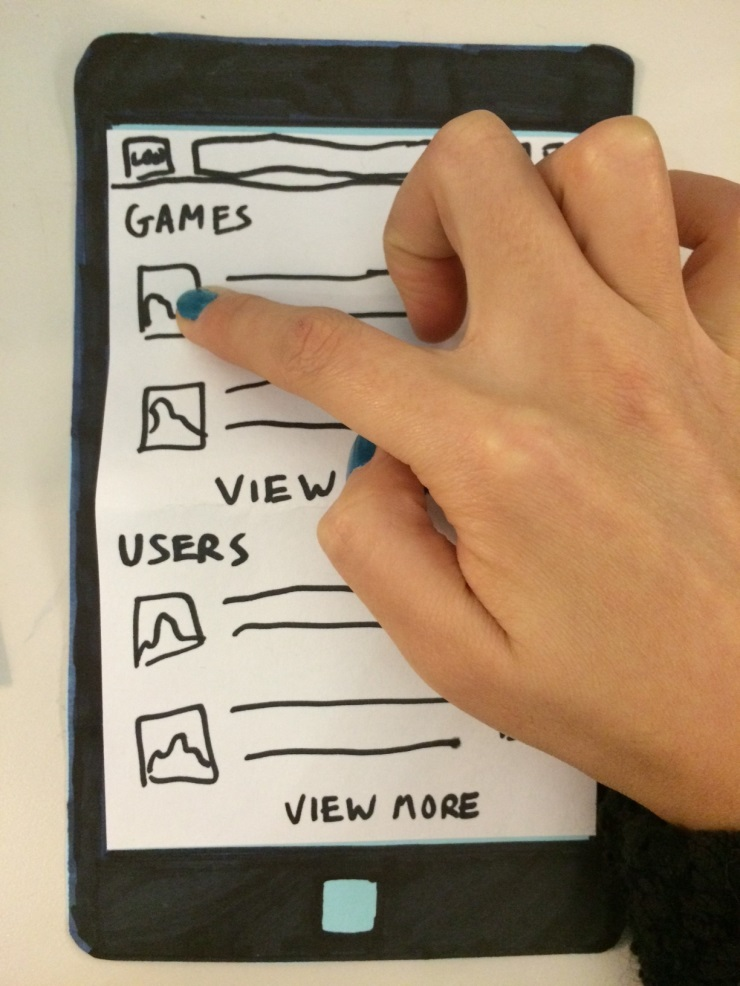 GAMES
VIEW
USERS
VIEW MORE